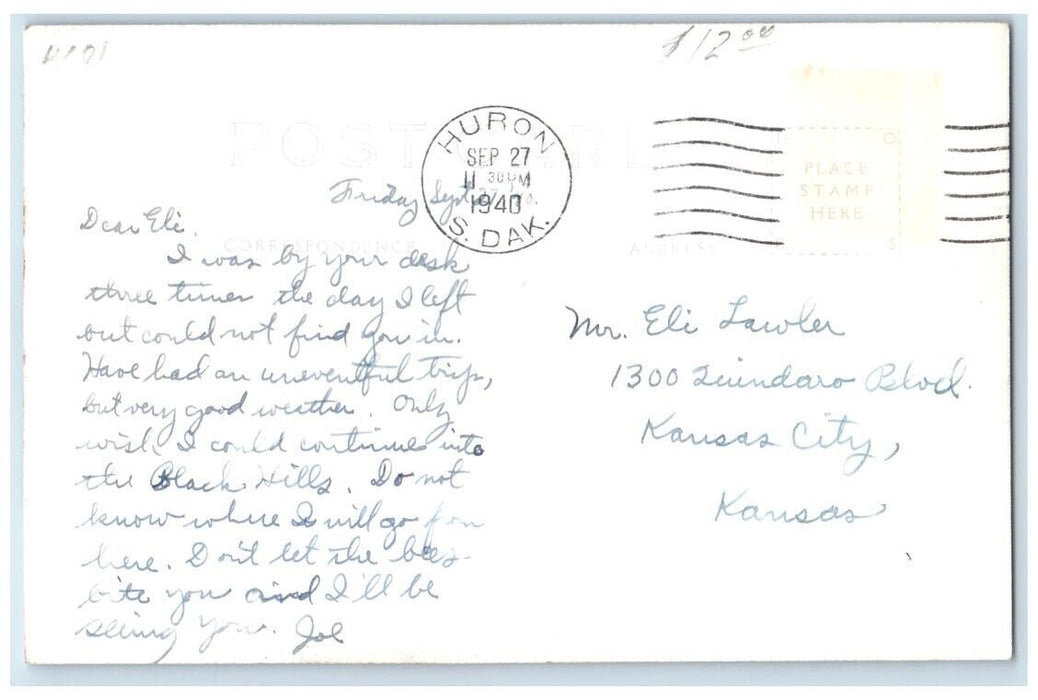 $12.00
POST CARD
HURON
SEP 27
11 30 PM
1940
S. DAK.
PLACE
STAMP
HERE
CORRESPONDENCE
ADDRESS
Friday Sept 27
Dear Eli.
I was by your desk
three times the day I left
but could not find you in.
Have had an uneventful trip,
but very good weather. Only
wish I could continue into
the Black Hills. Do not
know where I will go from
here. Don't let the bees
bite you and I'll be
seeing you. Joe
Mr. Eli Lawler
1300 Quindaro Blvd.
Kansas City,
Kansas